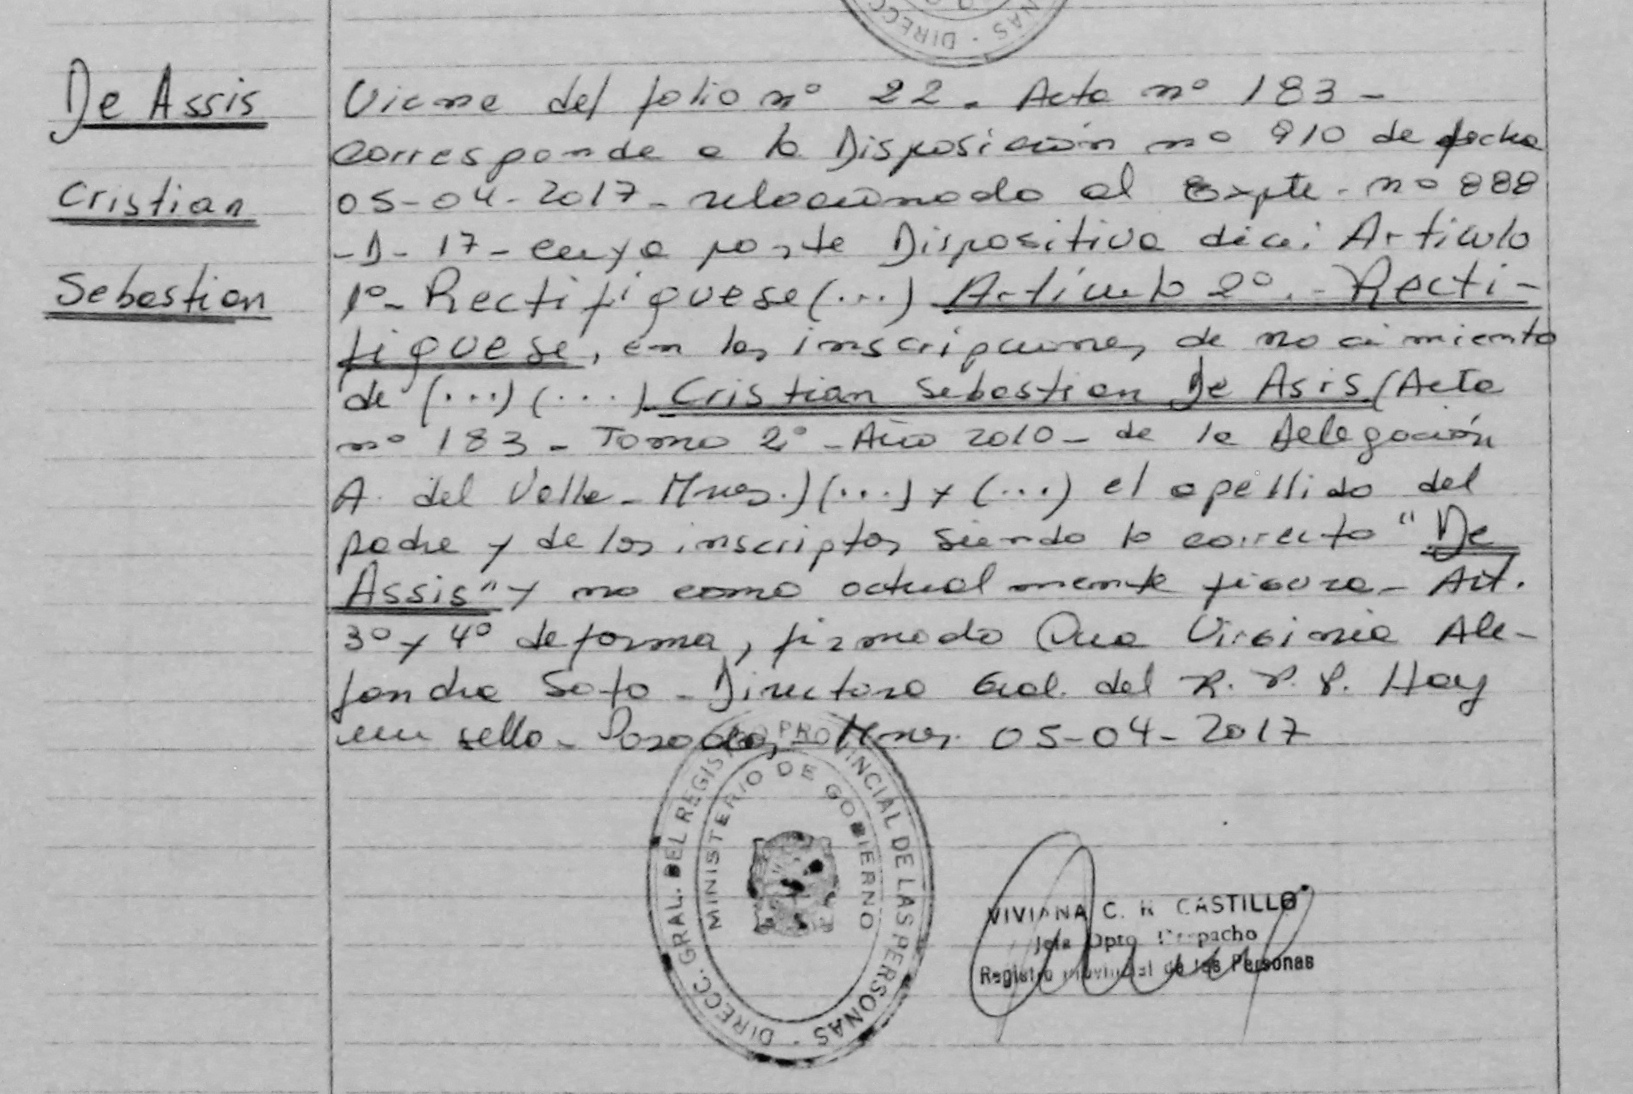 De Assis
Cristian
Sebastian
Viene del folio nº 22. Acta nº 183 -
corresponde a la Disposición nº 910 de fecha
05-04-2017- relacionado al Expte. nº 888
-D- 17- cuya parte Dispositiva dice: Artículo
1º- Rectifíquese (...) Artículo 2º.- Recti-
fíquese, en las inscripciones de nacimiento
de (...) (...) Cristian Sebastian De Asis (Acta
nº 183 - Tomo 2º - Año 2010 - de la Delegación
A. del Valle - Mnes.) (...) y (...) el apellido del
padre y de los inscriptos siendo lo correcto "De
Assis" y no como actualmente figura - Art.
3º y 4º de forma, firmado Dra Virginia Ale-
jandra Soto - Directora Gral. del R. P. P. Hay
un sello - Posadas, Mnes. 05-04-2017
DIRECC. GRAL. DEL REGISTRO PROVINCIAL DE LAS PERSONAS -
MINISTERIO DE GOBIERNO
VIVIANA C. R. CASTILLO
Jefa Dpto. Despacho
Registro Provincial de las Personas